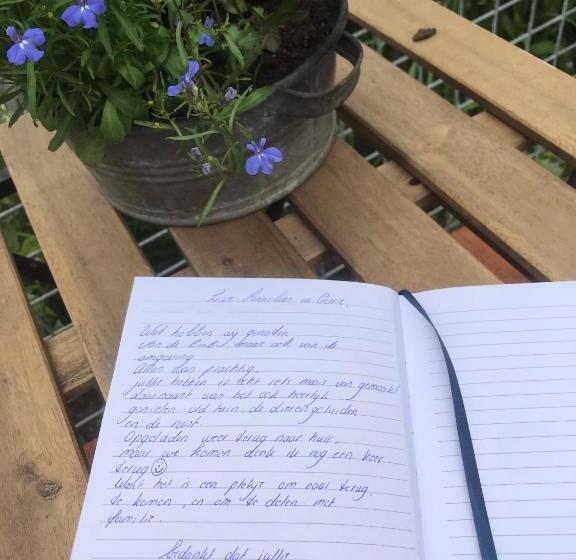 Lieve Annelies en Geur,
Wat hebben wij genoten
van de B&B, maar ook van de
omgeving
Alles was prachtig.
jullie hebben er echt iets moois van gemaakt!
daarnaast was het ook heerlijk
genieten v/d tuin, de dierengeluiden
en de rust.
Opgeladen weer terug naar huis.
maar we komen denk ik nog een keer
terug ☺
Want het is een plekje om naar terug
te komen, en om te delen met
familie.
Bedankt dat jullie